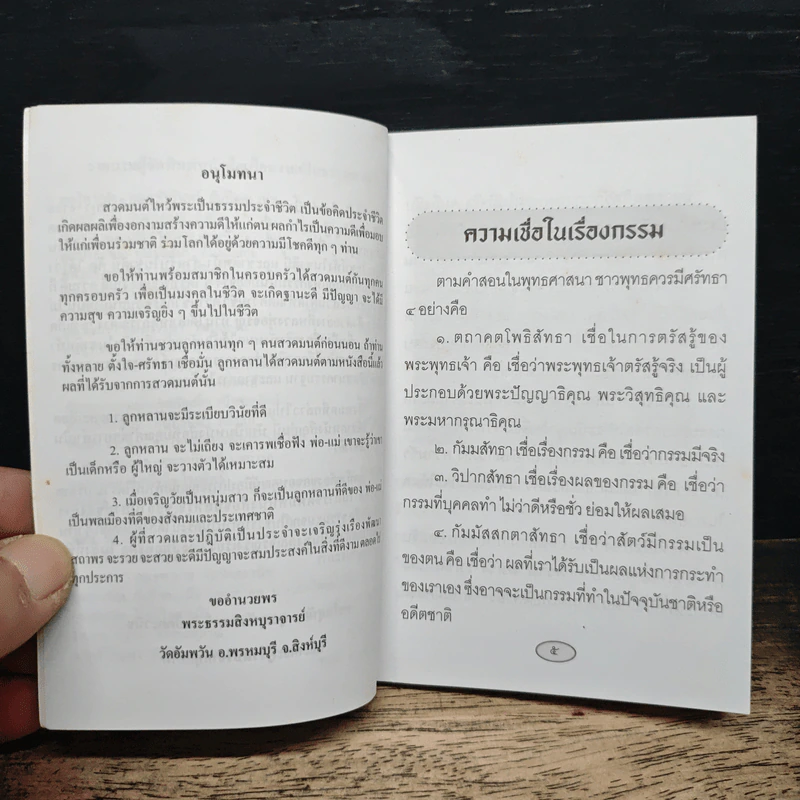 อนุโมทนา
สวดมนต์ไหว้พระเป็นธรรมประจำชีวิต เป็นข้อคิดประจำชีวิต
เกิดผลผลิเพื่องอกงามสร้างความดีให้แก่ตน ผลกำไรเป็นความดีเพื่อมอบ
ให้แก่เพื่อนร่วมชาติ ร่วมโลกได้อยู่ด้วยความมีโชคดีทุก ๆ ท่าน
ขอให้ท่านพร้อมสมาชิกในครอบครัวได้สวดมนต์กันทุกคน
ทุกครอบครัว เพื่อเป็นมงคลในชีวิต จะเกิดฐานะดี มีปัญญา จะได้มี
ความสุข ความเจริญยิ่ง ๆ ขึ้นไปในชีวิต
ขอให้ท่านชวนลูกหลานทุก ๆ คนสวดมนต์ก่อนนอน ถ้าท่าน
ทั้งหลาย ตั้งใจ-ศรัทธา เชื่อมั่น ลูกหลานได้สวดมนต์ตามหนังสือนี้แล้ว
ผลที่ได้รับจากการสวดมนต์นั้น
1. ลูกหลานจะมีระเบียบวินัยที่ดี
2. ลูกหลาน จะไม่เถียง จะเคารพเชื่อฟัง พ่อ-แม่ เขาจะรู้ว่าเขา
เป็นเด็กหรือ ผู้ใหญ่ จะวางตัวได้เหมาะสม
3. เมื่อเจริญวัยเป็นหนุ่มสาว ก็จะเป็นลูกหลานที่ดีของ พ่อ-แม่
เป็นพลเมืองที่ดีของสังคมและประเทศชาติ
4. ผู้ที่สวดและปฏิบัติเป็นประจำจะเจริญรุ่งเรืองพัฒนา
สถาพร จะรวย จะสวย จะดีมีปัญญาจะสมประสงค์ในสิ่งที่ดีงาม
ทุกประการ
ขออำนวยพร
พระธรรมสิงหบุราจารย์
วัดอัมพวัน อ.พรหมบุรี จ.สิงห์บุรี
ความเชื่อในเรื่องกรรม
ตามคำสอนในพุทธศาสนา ชาวพุทธควรมีศรัทธา
๔ อย่างคือ
๑. ตถาคตโพธิสัทธา เชื่อในการตรัสรู้ของ
พระพุทธเจ้า คือ เชื่อว่าพระพุทธเจ้าตรัสรู้จริง เป็นผู้
ประกอบด้วยพระปัญญาธิคุณ พระวิสุทธิคุณ และ
พระมหากรุณาธิคุณ
๒. กัมมสัทธา เชื่อเรื่องกรรม คือ เชื่อว่ากรรมมีจริง
๓. วิปากสัทธา เชื่อเรื่องผลของกรรม คือ เชื่อว่า
กรรมที่บุคคลทำ ไม่ว่าดีหรือชั่ว ย่อมให้ผลเสมอ
๔. กัมมัสสกตาสัทธา เชื่อว่าสัตว์มีกรรมเป็น
ของตน คือ เชื่อว่า ผลที่เราได้รับเป็นผลแห่งการกระทำ
ของเราเอง ซึ่งอาจจะเป็นกรรมที่ทำในปัจจุบันชาติหรือ
อดีตชาติ
๕